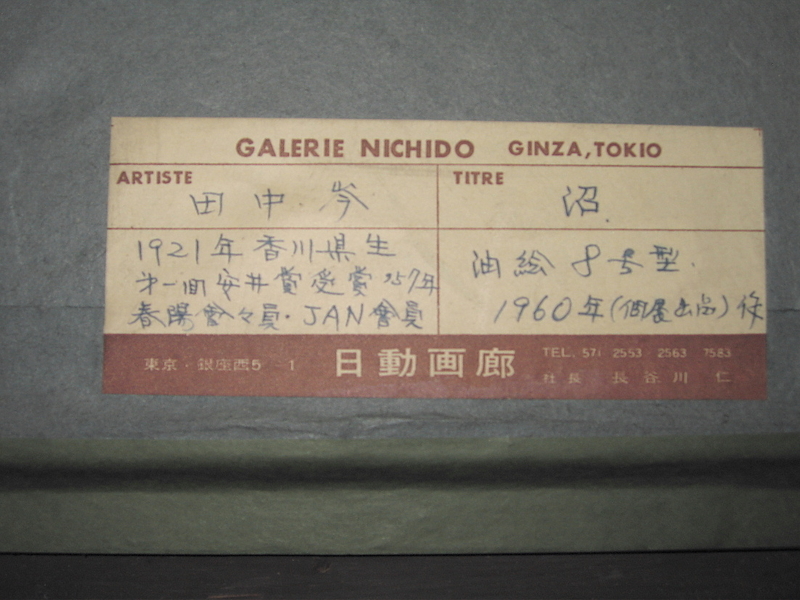 GALERIE NICHIDO GINZA, TOKIO
ARTISTE
田中 岑
TITRE
沼
1921年香川県生
第一回安井賞受賞 '57年
春陽會々員・JAN會員
油絵 8号型
1960年(個展出品)作
東京・銀座西5 1
日動画廊
TEL. 571 2553 2563 7583
社長 長谷川 仁